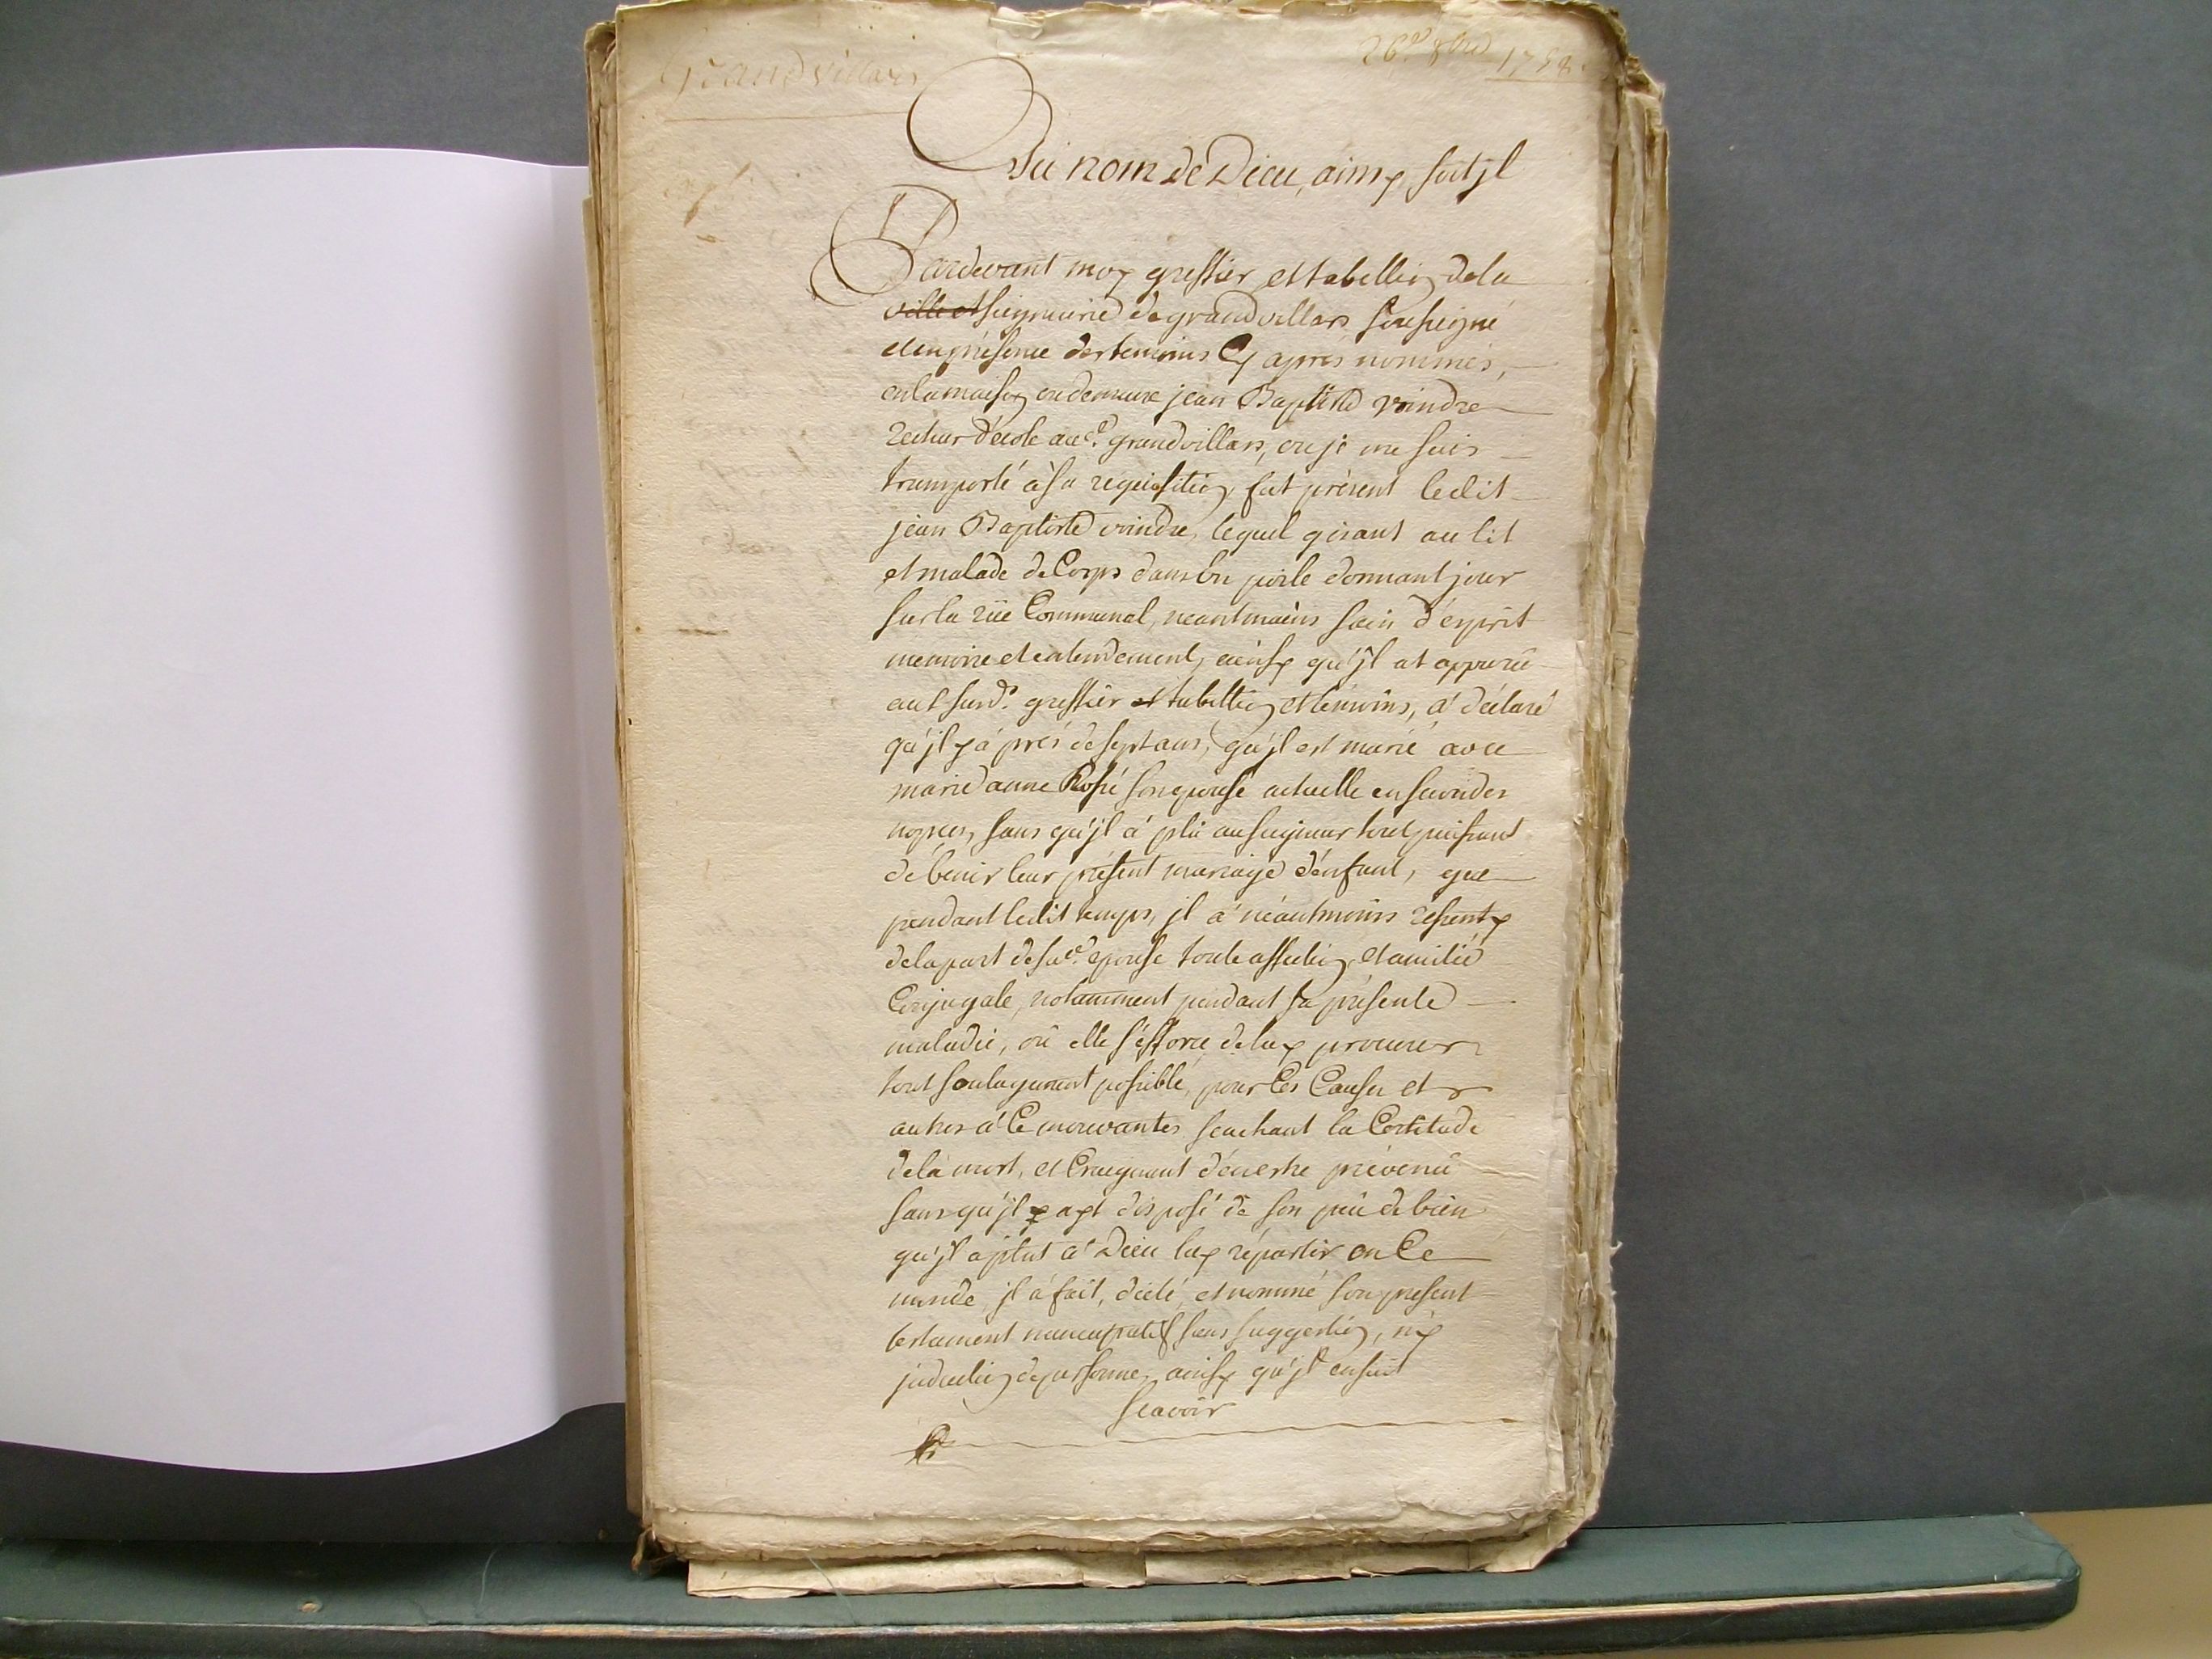 Grandvillars
26e 8bre 1758.
Au nom de Dieu, ainsy soitjl
Pardevant moy greffier et tabellion de la
ville et seigneurie de grandvillars soussigné
et en présence des temoins Cy apres nommés,
en la maison ou demeure jean Baptiste voindre
recteur d'école aud. grandvillars, ou je me suis
transporté à sa requisition, fut présent ledit
jean Baptiste voindre, lequel gisant au lit
et malade de Corps dans un poile donnant jour
sur la rüe Communal, neantmoins sain d'esprit
memoire et entendement, ainsy qu'jl at apparu
aut susd. greffier et tabellion et temoins, a déclaré
qu'jl y a prés de sept ans, qu'jl est marié avec
marie anne Rossé son epouse actuelle en secondes
nopces, sans qu'jl a plû au seigneur tout puissant
de bénir leur présent mariage d'enfant, que
pendant ledit temps, jl a néantmoins ressenty
de la part de sad. epouse toute affection et amitié
Conjugale, notamment pendant sa présente
maladie, où elle s'efforce de luy procurer
tout soulagement possible, pour Ces Causes et
autres à Ce mouvantes scachant la Certitude
de la mort, et Craignant d'en estre prévenû
sans qu'jl y ayt disposé de son peu de bien
qu'jl a plut à Dieu luy répartir en Ce
monde, jl a fait, dicté, et nommé son present
testament nuncupatif sans suggestion, ny
jnduction de personne, ainsy qu'jl ensuit
Scavoir